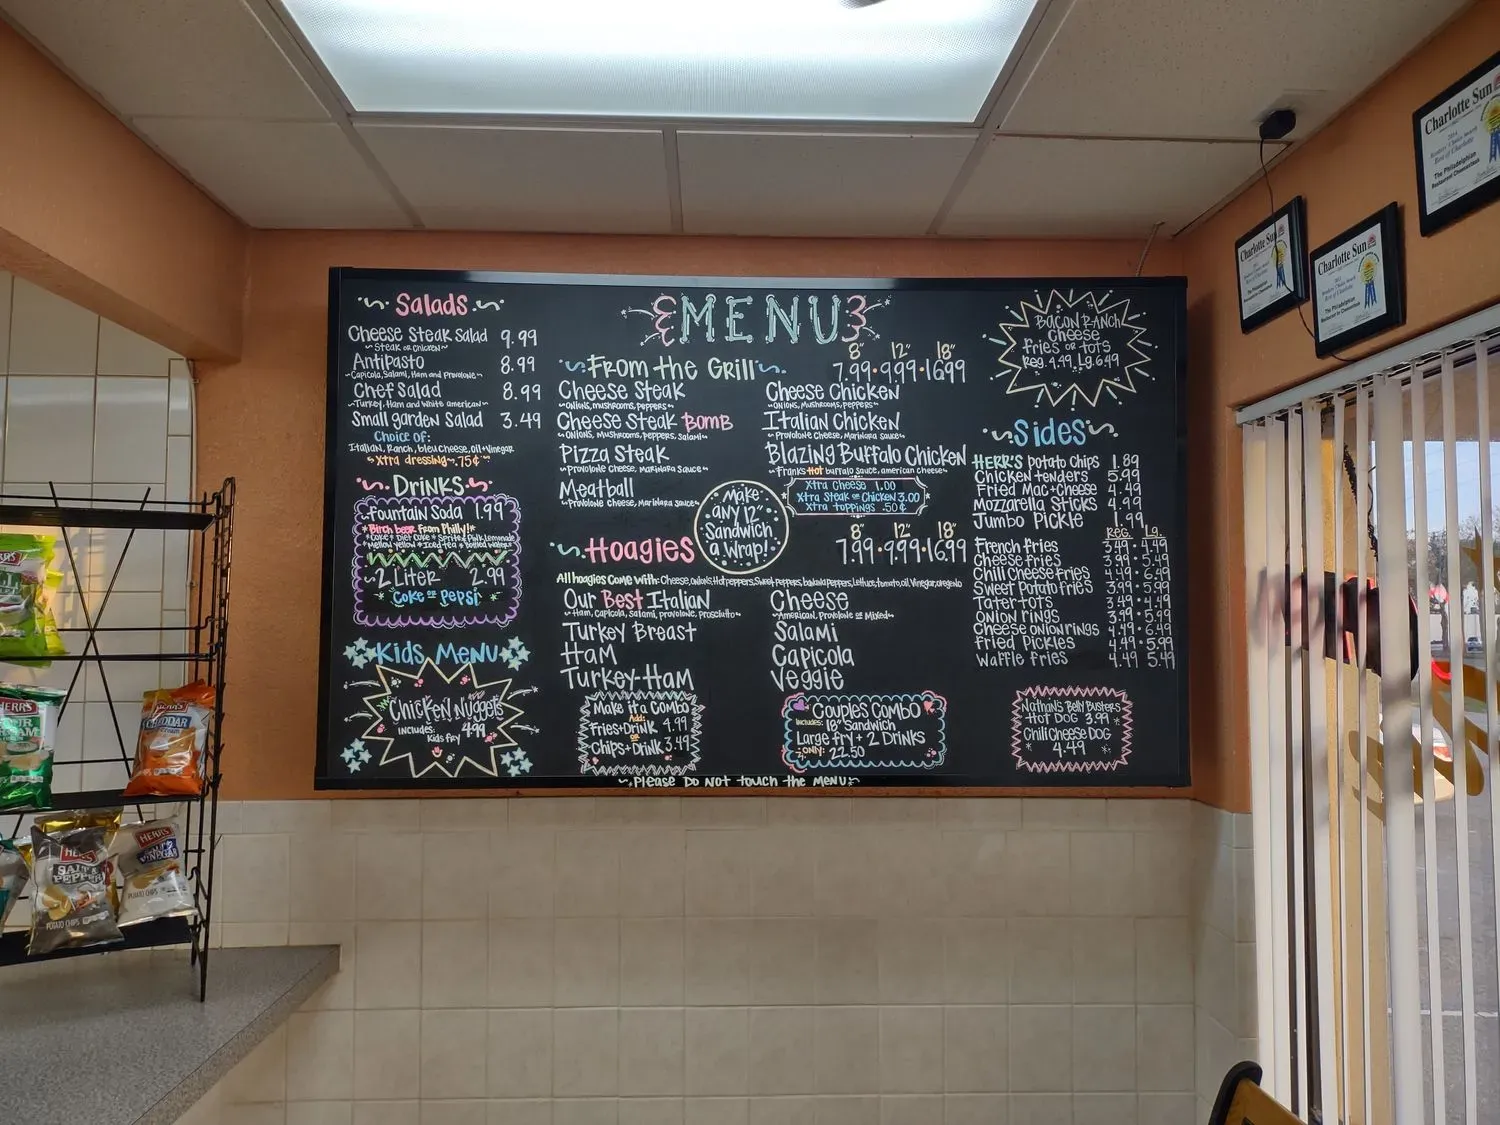 MENU
Salads
Cheese Steak Salad 9.99
~Steak or Chicken~
Antipasto 8.99
~Capicola, Salami, Ham and Provolone~
Chef Salad 8.99
~Turkey, Ham and White american~
Small garden Salad 3.49
Choice of:
Italian, Ranch, bleu Cheese, oil + Vinegar
~Xtra dressing~.75¢~
Drinks
fountain Soda 1.99
*Birch beer From Philly!*
Coke * Diet Coke * Sprite * Pink Lemonade
Mellow Yellow * Iced tea * Bottled Water
~2 Liter 2.99
Coke or Pepsi
Kids Menu
Chicken Nuggets
includes: 4.99
Kids fry
From the Grill
8" 12" 18"
7.99 • 9.99 • 16.99
Cheese Steak
~Onions, mushrooms, peppers~
Cheese Steak Bomb
~Onions, mushrooms, peppers, salami~
Pizza Steak
~Provolone Cheese, Marinara Sauce~
Meatball
~Provolone Cheese, Marinara Sauce~
Cheese Chicken
~Onions, Mushrooms, peppers~
Italian Chicken
~Provolone Cheese, Marinara Sauce~
Blazing Buffalo Chicken
~Franks Hot buffalo Sauce, american Cheese~
Xtra Cheese 1.00
Xtra Steak or Chicken 3.00
Xtra toppings .50¢
Make
any 12"
Sandwich
a Wrap!
Hoagies
8" 12" 18"
7.99 • 9.99 • 16.99
All hoagies Come with: Cheese, onions, Hot peppers, Sweet peppers, banana peppers, Lettuce, tomato, oil, Vinegar, oregeno
Our Best Italian
~Ham, Capicola, Salami, provolone, prosciutto~
Turkey Breast
Ham
Turkey-Ham
Cheese
~American, Provolone or Mixed~
Salami
Capicola
Veggie
Make it a Combo
Add:
Fries + Drink 4.99
or
Chips + Drink 3.49
Couples Combo
includes: 18" Sandwich
Large fry + 2 Drinks
~only: 22.50
Bacon Ranch
Cheese
fries or tots
Reg. 4.49 Lg. 6.99
Sides
HERR'S Potato Chips 1.89
Chicken tenders 5.99
Fried Mac + Cheese 4.49
Mozzarella Sticks 4.99
Jumbo Pickle 1.99
Reg. Lg.
French fries 3.49 • 4.49
Cheese fries 3.99 • 5.49
Chili Cheese fries 4.49 • 6.49
Sweet Potato fries 3.99 • 5.99
Tater-tots 3.49 • 4.49
Onion rings 3.99 • 5.99
Cheese onion rings 4.49 • 6.49
Fried Pickles 4.49 • 5.99
Waffle fries 4.49 5.49
Nathan's Belly Busters
Hot Dog 3.99
Chili Cheese Dog
4.49
~Please Do Not touch the Menu~
Charlotte Sun
The Philadelphian
Charlotte Sun
The Philadelphian
Charlotte Sun
Best of Charlotte
The Philadelphian
HERR'S
HERR'S
HERR'S
CHEDDAR
HERR'S
SALT &
PEPPER
POTATO CHIPS
HERR'S
VINEGAR
POTATO CHIPS